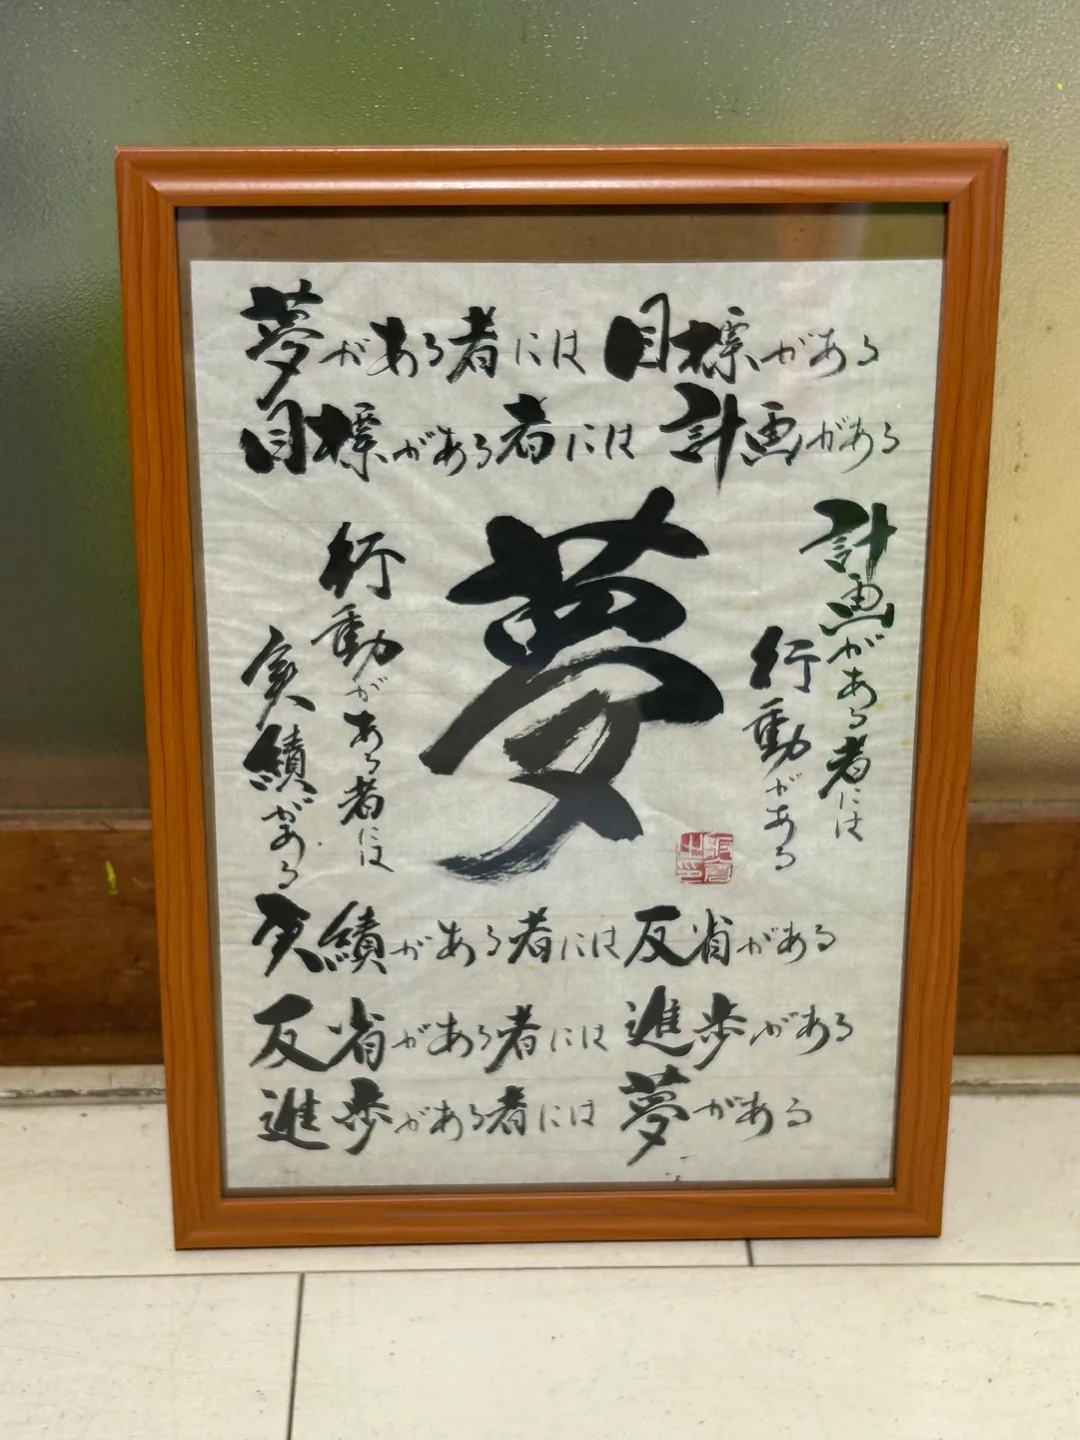 夢がある者には 目標がある
目標がある者には 計画がある
計画がある者には
行動がある
夢
行動がある者には
実績がある
実績がある者には反省がある
反省がある者には 進歩がある
進歩がある者には 夢がある